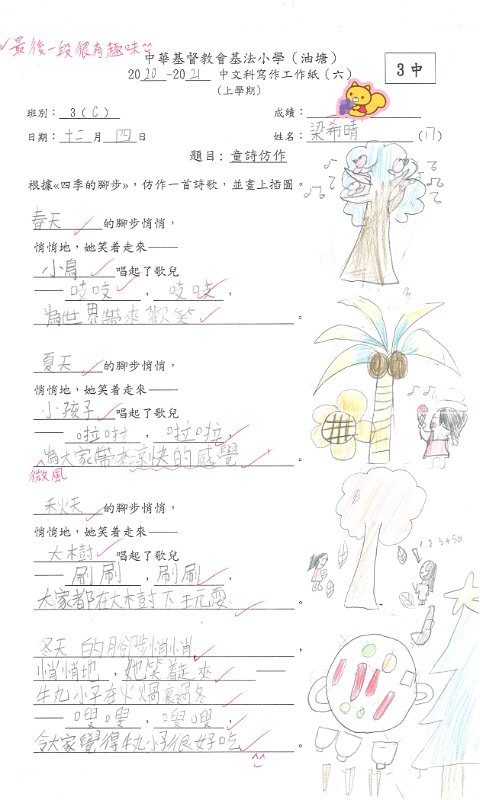 最後一段很有趣味
中華基督教會基法小學（油塘）
2020-2021 中文科寫作工作紙（六）
（上學期）
3中
班別： 3(C) 成績：
日期：十二月四日 姓名：梁希晴（17）
題目：童詩仿作
根據«四季的腳步»，仿作一首詩歌，並畫上插圖。
春天的腳步悄悄，
悄悄地，她笑着走來——
小鳥唱起了歌兒
——吱吱，吱吱，
為世界帶來歡笑。
夏天的腳步悄悄，
悄悄地，她笑着走來——
小孩子唱起了歌兒
——啦啦，啦啦，
為大家帶來涼快的感覺。
微風
秋天的腳步悄悄，
悄悄地，她笑着走來——
大樹唱起了歌兒
——刷刷，刷刷，
大家都在大樹下玩耍。
123456
冬天的腳步悄悄
悄悄地，她笑着走來——
牛丸小子在火鍋裏過冬
——嗖嗖，嗖嗖，
令大家覺得牛丸小子很好吃。